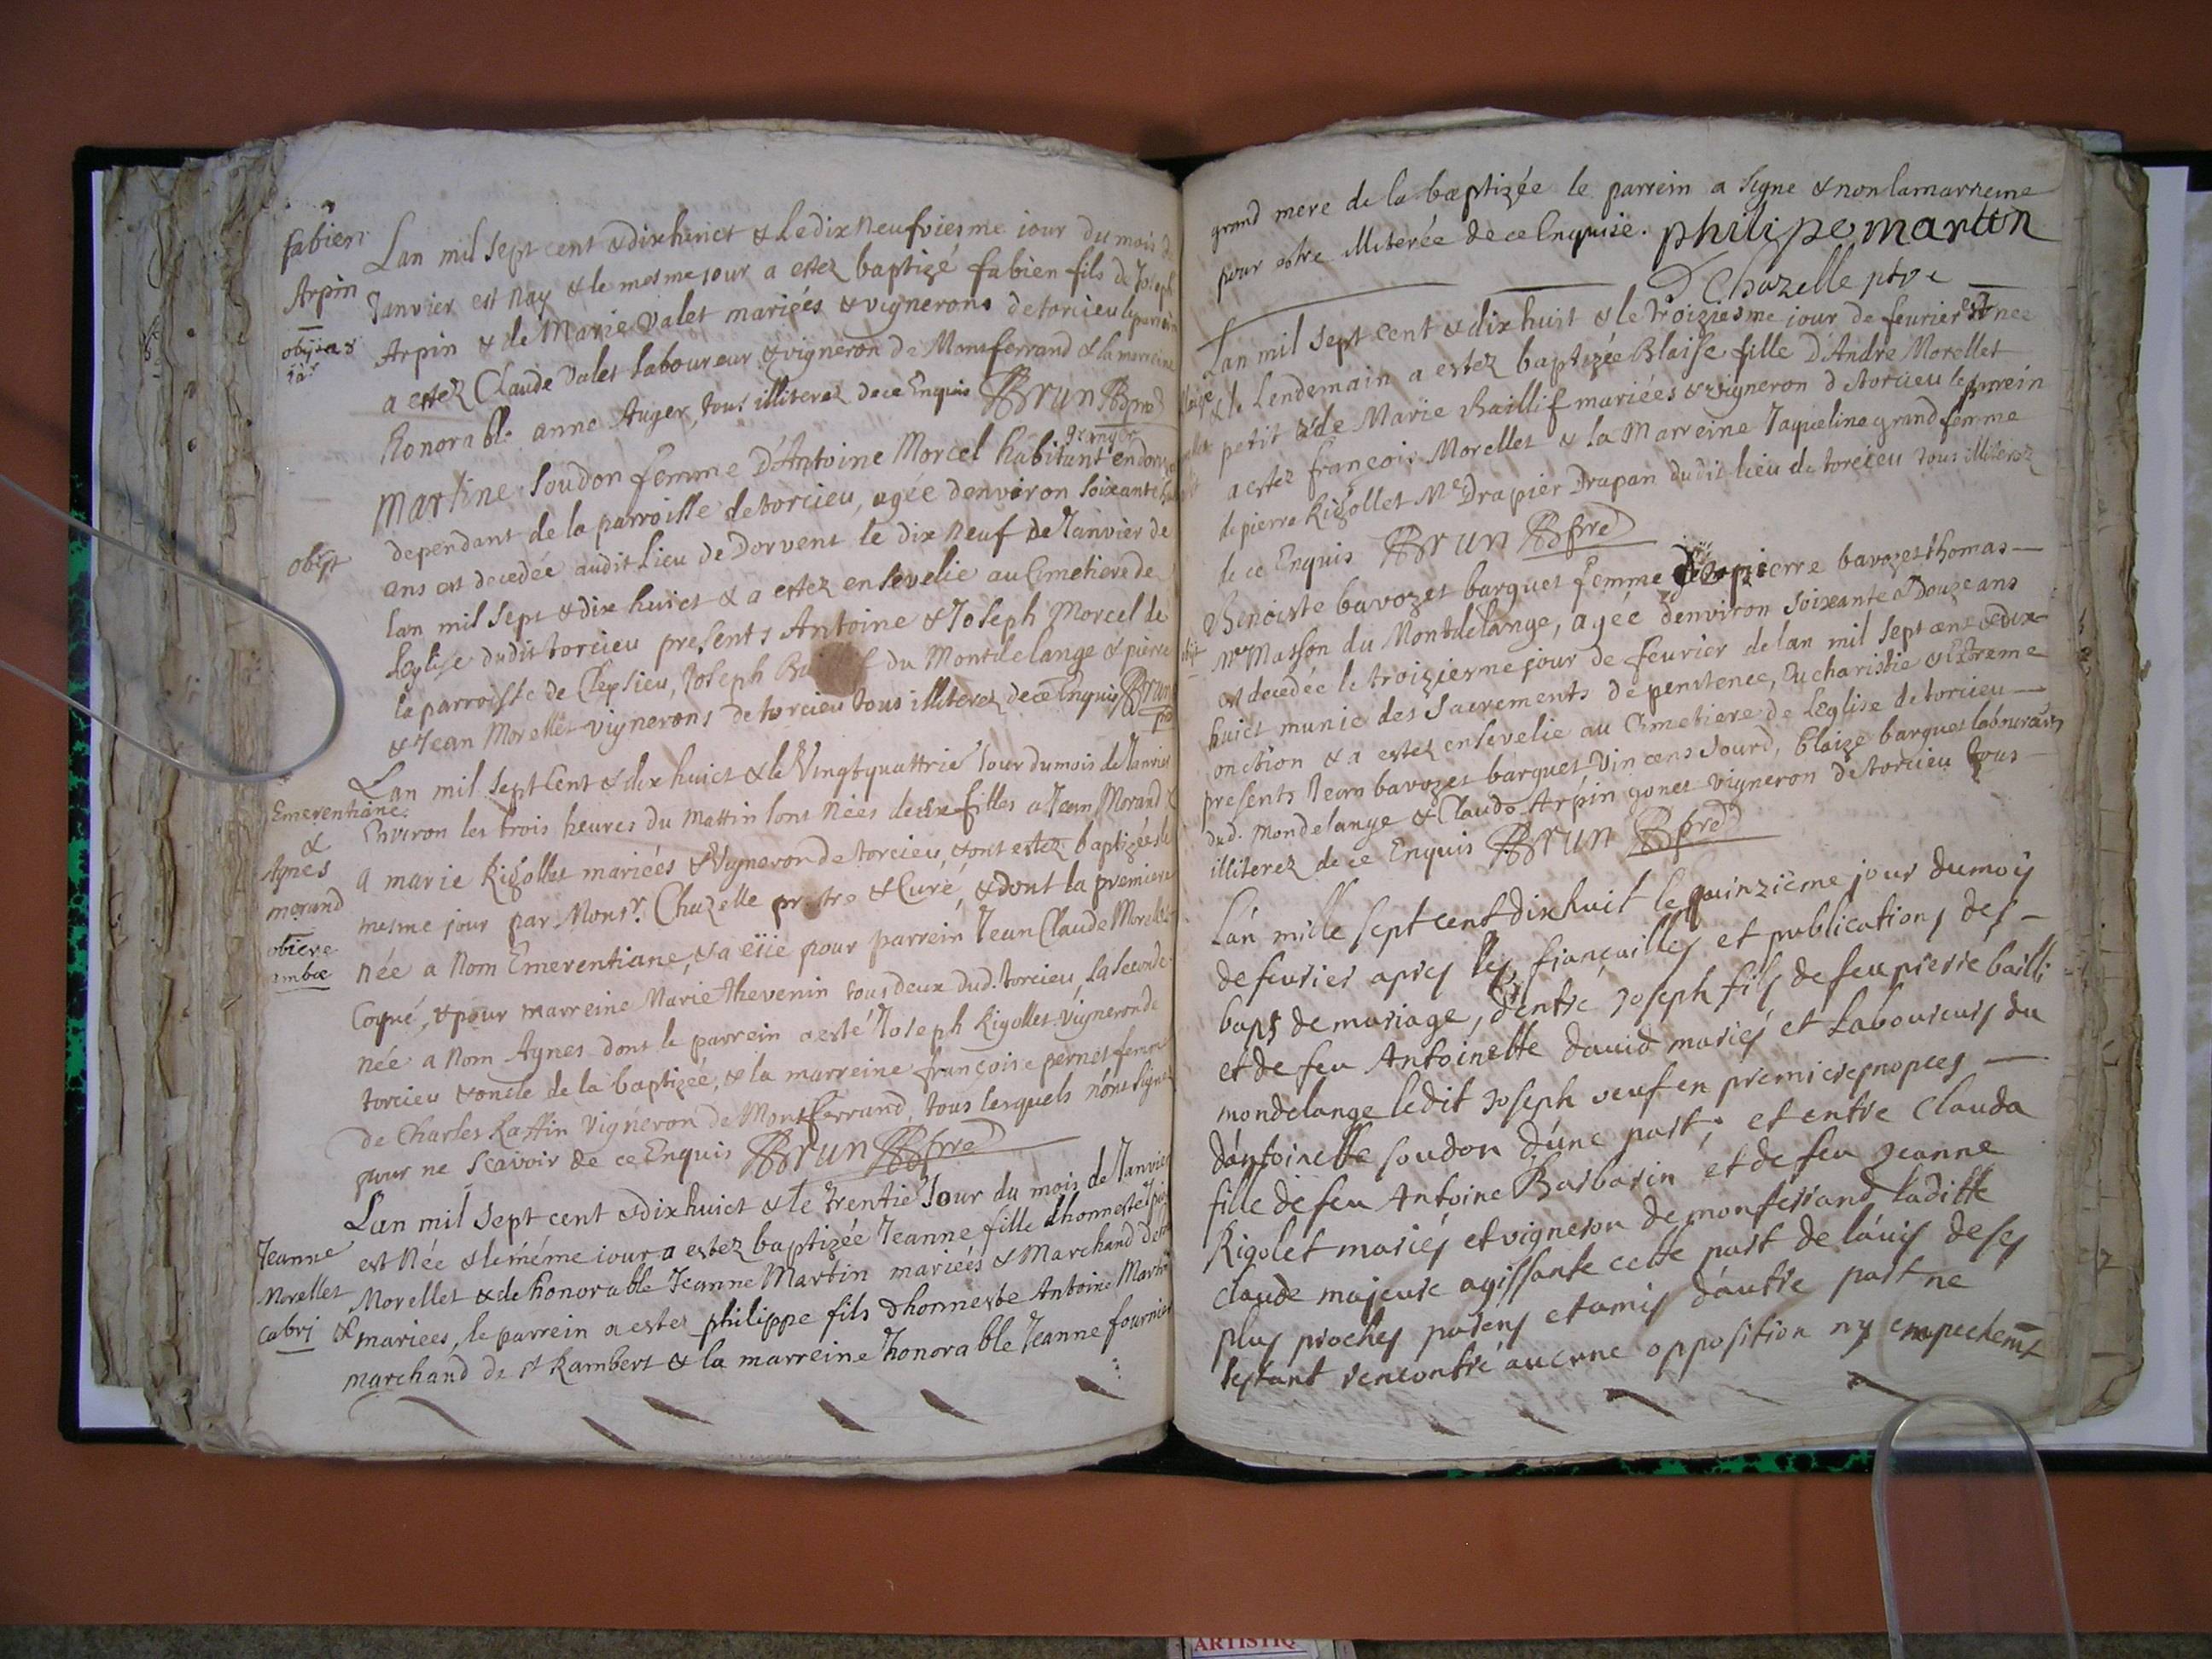 fabien
Arpin
Lan mil sept cent & dix huict & le dix neufviesme iour du mois de
Janvier est nay & le mesme iour a estez baptizé fabien fils de Joseph
Arpin & de Marie Valet mariées & vignerons de torcieu le parrein
a estez Claude Valet laboureur & vigneron de Monferrand & la marreine
honorable anne Auger, tous illiterez de ce Enquis Brun pre
obiit
granger
Martine Soudon femme D'Antoine Morcel habitant en dorvent
dependant de la parroisse de torcieu, agée denviron soixante
ans est decedée audit lieu de Dorvent le dix neuf de Janvier de
lan mil sept & dix huict & a estez ensevelie au Cimetiere de
l'Eglise dudit torcieu presents Antoine & Joseph Morcel de
la parroisse de Clepsieu, Joseph du Montdelange & pierre
& Jean Morellet vignerons de torcieu tous illiterez de ce Enquis Brun
Emerentiane
&
Agnes
morand
obiere
ambæ
Lan mil sept Cent & dix huict & le Vingt quattrie Jour du mois de Janvier
Environ les trois heures du Mattin sont Nées deux filles a Jean Morand
a marie Rigollet mariées & Vigneron de torcieu, & ont estez baptizées le
mesme jour par Monsr. Chazelle prestre & Curé, & dont la premiere
née a Nom Emerentiane, & a eüe pour parrein Jean Claude Morellet
Coyné, & pour marreine Marie Thevenin tous deux dud. torcieu, la seconde
née a nom Agnes dont le parrein a esté Joseph Rigollet vigneron de
torcieu & oncle de la baptizée, & la marreine françoise pernet femme
de Charles Rastin Vigneron de Monferrand, tous lesquels n'ont signé
pour ne scavoir de ce Enquis Brun pre
Jeanne
Morellet
cabri
Lan mil sept cent & dix huict & le trentie Jour du mois de Janvier
est Née & le méme iour a estez baptizée Jeanne fille dhonneste
Morellet & de honorable Jeanne Martin mariées & Marchand de
& mariees, le parrein a estez philippe fils dhonneste Antoine Martin
marchand de st Rambert & la marreine honorable Jeanne fournier
grand mere de la baptizée le parrein a signe & non la marreine
pour estre illiterée de ce Enquise. philipe martin
D Chazelle ptre
Lan mil sept cent & dix huit & le troiziesme iour de feurier est nee
& le lendemain a estez baptizée Blaise fille D'Andre Morellet
petit & de Marie Baillif mariées & vigneron de torcieu le parrein
a estez françois Morellet & la Marreine Jaqueline grand femme
de pierre Rigollet Me Drapier Drapan dudit lieu de torcieu tous illiterez
de ce Enquis Brun pre
Benoiste bavozet barquet femme de pierre bavozet thomas
Me Masson du Montdelange, agée denviron soixante & Douze ans
est decedée le troiziesme jour de feurier de lan mil sept cent & dix
huict munie des Sacrements de penitence, Eucharistie & Extreme
onction & a estez ensevelie au Cimetiere de l'Eglise de torcieu
presents Jean bavozet barquet Vincens Jourd, blaize barquet laboureurs
dud. Mondelange & Claude Arpin gonet vigneron de torcieu tous
illiterez de ce Enquis Brun pre
L'an mille sept cent dix huit le quinzième jour du moy
de feurier apres les fiançailles et publications des
bans de mariage, d'entre Joseph fils de feu pierre bailli
et de feu Antoinette david mariés et Laboureurs du
mondelange ledit Joseph veuf en premieres nopces
d'antoinette soudon d'une part; et entre Clauda
fille de feu Antoine Barbarin et de feu Jeanne
Rigolet mariés et vigneron de monferrand laditte
Claude majeure agissante cette part de l'auis de ses
plus proches parens et amis d'autre part ne
sestant rencontré aucune opposition ny empechemt
ARTISTIQ